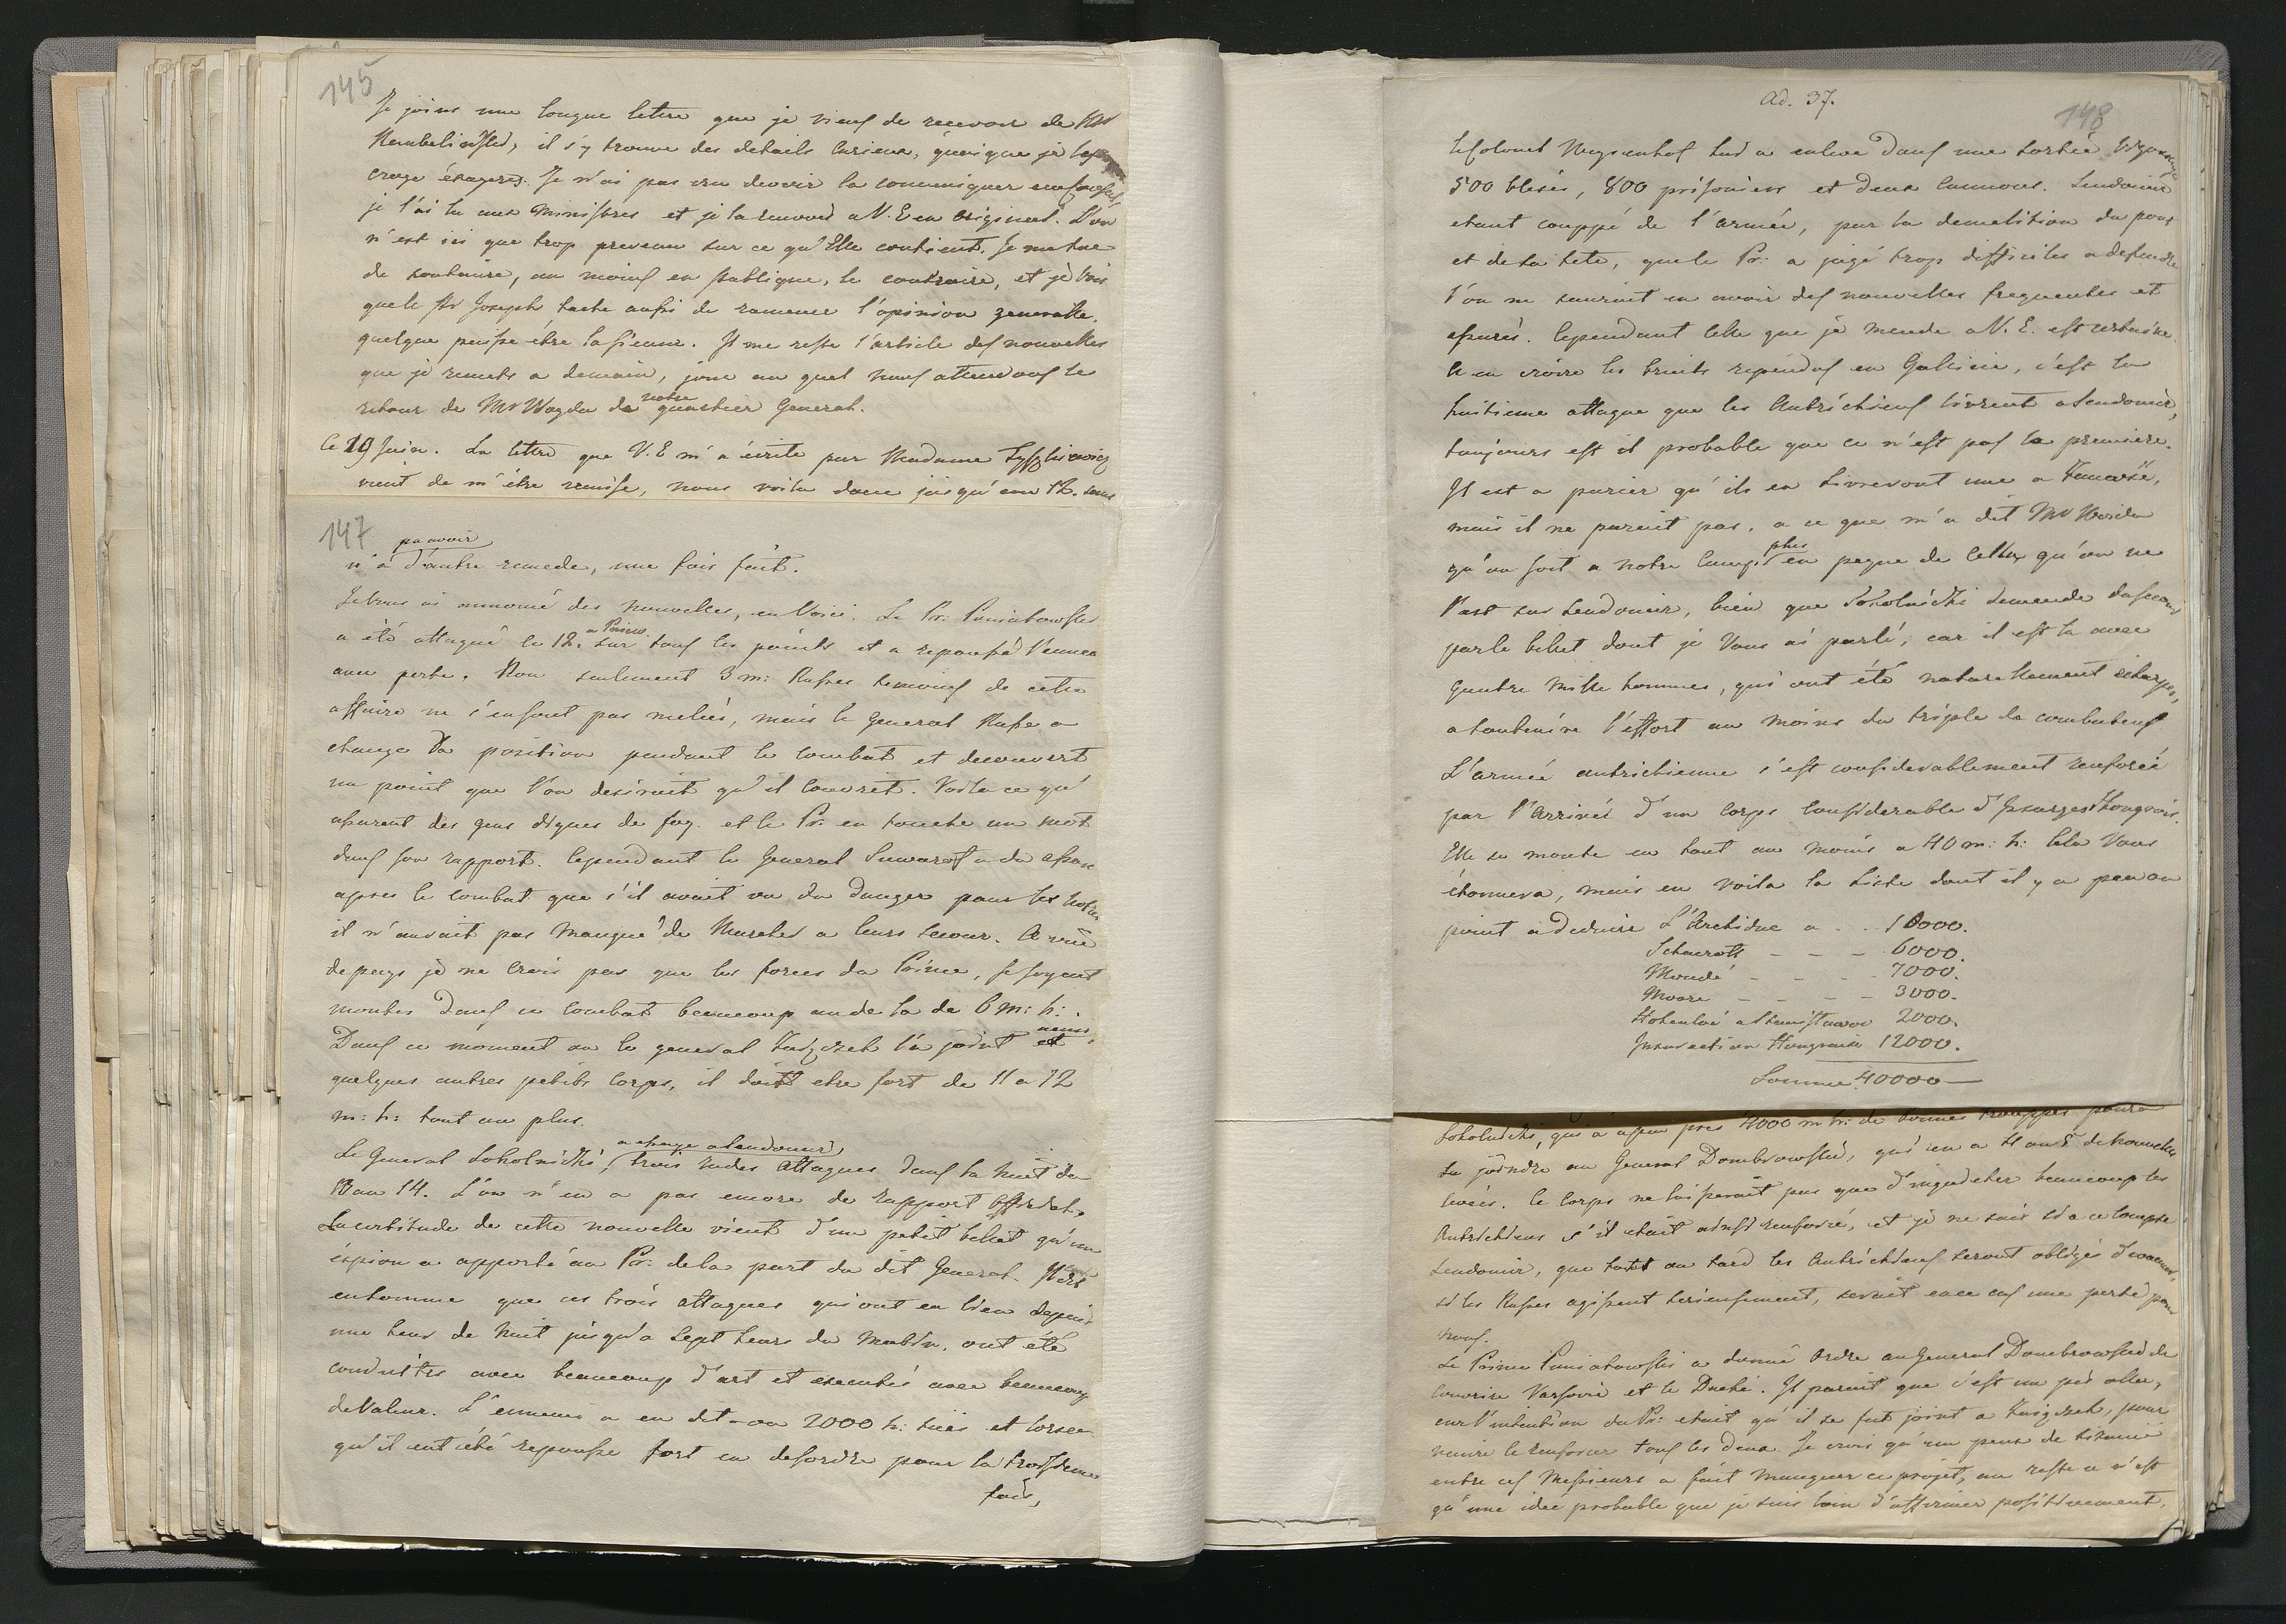 145
Je joins une longue lettre que je viens de recevoir de Mr
Rembelinski, il s'y trouve des details curieux, quoique je les
croye éxagerés. Je n'ai pas cru devoir la communiquer
je l'ai lu aux Ministres et je la renvoye a V. E en original. L'on
n'est ici que trop prevenu sur ce qu'Elle contient. Je me tue
de soutenire, au moins en publique, le contraire, et je vois
que le Pr Joseph tache aussi de ramener l'opinion generalle,
quelque puisse être la sienne. Il me reste l'article des nouvelles
que je remets a demain, jour au quel nous attendons le
retour de Mr Wogda de notre quartier General.
Ce 19 Juin. La lettre que V. E m'a écrite par Madame Tyszkiewicz
vient de m'étre remise, nous voila donc jusqu'au 12. sans
147
pouvoir
n'a d'autre remede, une fois fait.
Je vous ai annoncé des nouvelles, en Voici. Le Pr: Poniatowski
a été attaqué le 12. sur tous les points et a repoussé l'ennemi
avec perte. Non seulement 3 m: Russes temoins de cette
affaire ne s'en sont pas melés, mais le General Russe a
changé sa position pendant le combat et decouvert
un point que l'on desiroit qu'il couvrit. Voila ce qu'
assurent des gens dignes de foy. et le Pr: en touche un mot
dans son rapport. Cependant le General Suwarof a du assurer
apres le combat que s'il avait vu du danger pour les notres
il n'aurait pas manqué de Marcher a leurs secour. A vuë
de pays je ne crois pas que les forces du Prince, se soyent
montés dans ce combat beaucoup au de la de 6 m: h:.
Dans ce moment ou le general l'a joint et
quelques autres petits corps, il doit etre fort de 11 a 12
m: h: tout au plus.
Le General Sokolnicki a essuye a Sendomir, trois rudes attaques dans la nuit du
13 au 14. L'on n'en a pas encore de rapport officiel,
La certitude de cette nouvelle vient d'un petit billet qu'un
éspion a apporté au Pr: de la part du dit General. Il dit
en somme que ces trois attaques qui ont eu lieu depuis
une heur de nuit jusqu'a sept heurs du matin, ont été
conduites avec beaucoup d'art et executés avec beaucoup
de Valeur. L'ennemi a eu dit-on 2000 h: tués et lorse
qu'il eut été repousse fort en desordre pour la troisieme
fois,
Ad. 37.
148
Le Colonel Weysenhof lui a enleve dans une sortie
500 blesés, 800 prisoniers et deux Cannons. Sendomir
etant couppé de l'armée, par la demolition du pont
et de la tete, que le Pr: a jugé trop difficiles a defendre
l'on ne sauroit en avoir des nouvelles frequentes et
assurés. Cependant celle que je mende a V. E. est certaine.
A en croire les bruits repandus en Gallicie, c'est la
huitieme attaque que les Autrichiens livrent a Sendomir,
toujours est il probable que ce n'est pas la premiere.
Il est a parier qu'ils en livreront une a Zamosc,
mais il ne parait pas, a ce que m'a dit Mr Woida
qu'on soit a notre Camp plus en peine de Cella, qu'on ne
l'est sur Sendomir, bien que Sokolnicki demende du secour
par le billet dont je Vous ai parlé; car il est la avec
quatre mille hommes, qui ont été naturellement
a soutenire l'effort au moins du triple de combatens
L'armée autrichienne s'est considerablement renforcé
par l'arrivée d'un corps considerable d'Insurges Hongrois.
Elle se monte en tout au moins a 40 m: h: Cela Vous
étonnera, mais en voila la Liste dont il y a peu ou
point a deduire L'Archiduc a . . . 10000.
Schauroth - - - 6000.
Mondé - - - - 7000.
Mohr - - - - 3000.
Hohenloé a Stanislawow 2000.
Insurection Hongroise 12000.
Somme 40000 —
Sokolnicki, qui a a peu pres 4000 m h: de bonnes trouppes poura
se joindre au General Dombrowski, qui en a 4 ou 5 de nouvelles
levées. Ce Corps ne laisserait pas que d'inquieter beaucoup les
Autrichiens s'il etait ainsi renforcé, et je ne sais si a ce compte
Sendomir, que tot ou tard les Autrichiens seront obligés d'evacuer,
si les Russes agissent serieusement, serait en ce cas une perte pour
nous.
Le Prince Poniatowski a donné Ordre au General Dombrowski de
Couvrire Varsovie et le Duché. Il parait que c'est un pis aller,
car l'intention du Pr: etait qu'il se fut joint a Zaiqczek, pour
venire le renforcer tous les deux. Je crois qu'un peux de
entre ces Messieurs a fait manquer ce projet, au reste ce n'est
qu'une idée probable que je suis loin d'affirmer positivement,